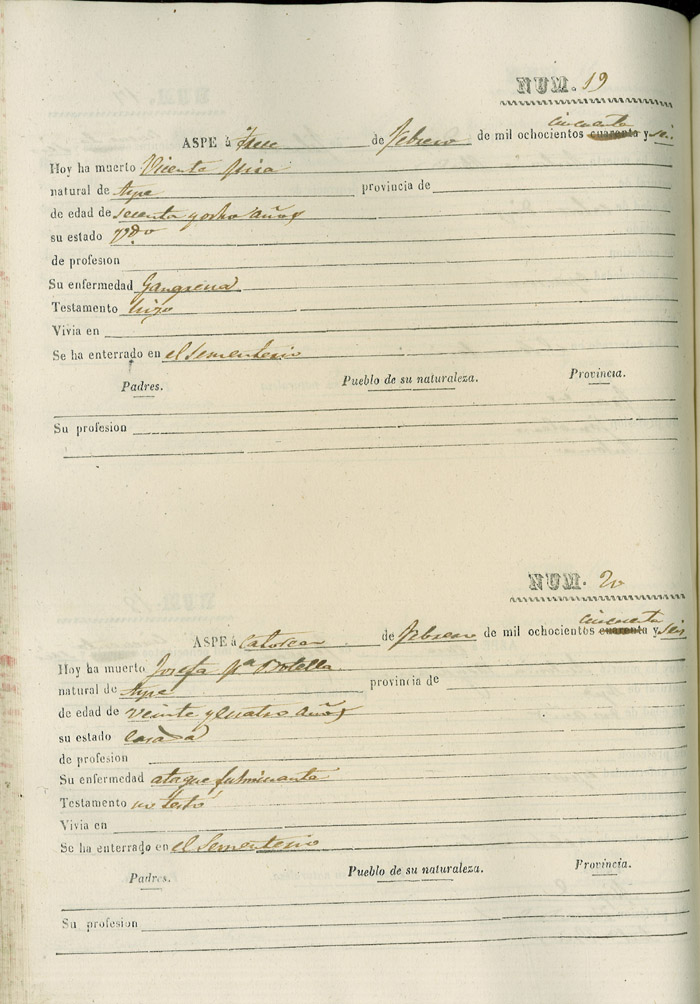 NUM. 19
cincuenta
ASPE á Trece de febrero de mil ochocientos cuarenta y seis
Hoy ha muerto Vicente Mira
natural de Aspe provincia de
de edad de secenta y ocho años
su estado Vdo
de profesion
Su enfermedad Gangrena
Testamento hizo
Vivia en
Se ha enterrado en el sementerio
Padres. Pueblo de su naturaleza. Provincia.
Su profesion
NUM. 20
cincuenta
ASPE á Catorce de febrero de mil ochocientos cuarenta y seis
Hoy ha muerto Josefa Mª Botella
natural de Aspe provincia de
de edad de veinte y cuatro años
su estado casada
de profesion
Su enfermedad ataque fulminante
Testamento no testó
Vivia en
Se ha enterrado en el Sementerio
Padres. Pueblo de su naturaleza. Provincia.
Su profesion